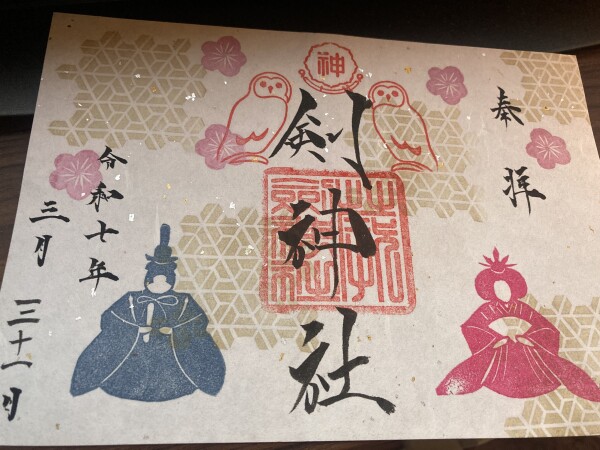 奉拝
神
剣神社
令和七年
三月
三十一日